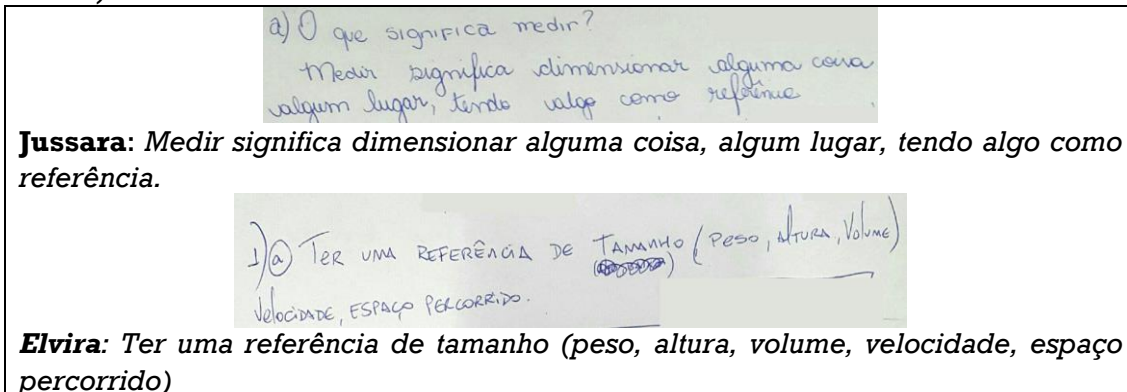 a) O que significa medir?
Medir significa dimensionar alguma coisa
algum lugar, tendo algo como
Jussara: Medir significa dimensionar alguma coisa, algum lugar, tendo algo como
referência.
1) a) TER UMA REFERÊNCIA DE TAMANHO (PESO, ALTURA, VOLUME)
VELOCIDADE, ESPAÇO PERCORRIDO.
Elvira: Ter uma referência de tamanho (peso, altura, volume, velocidade, espaço
percorrido)